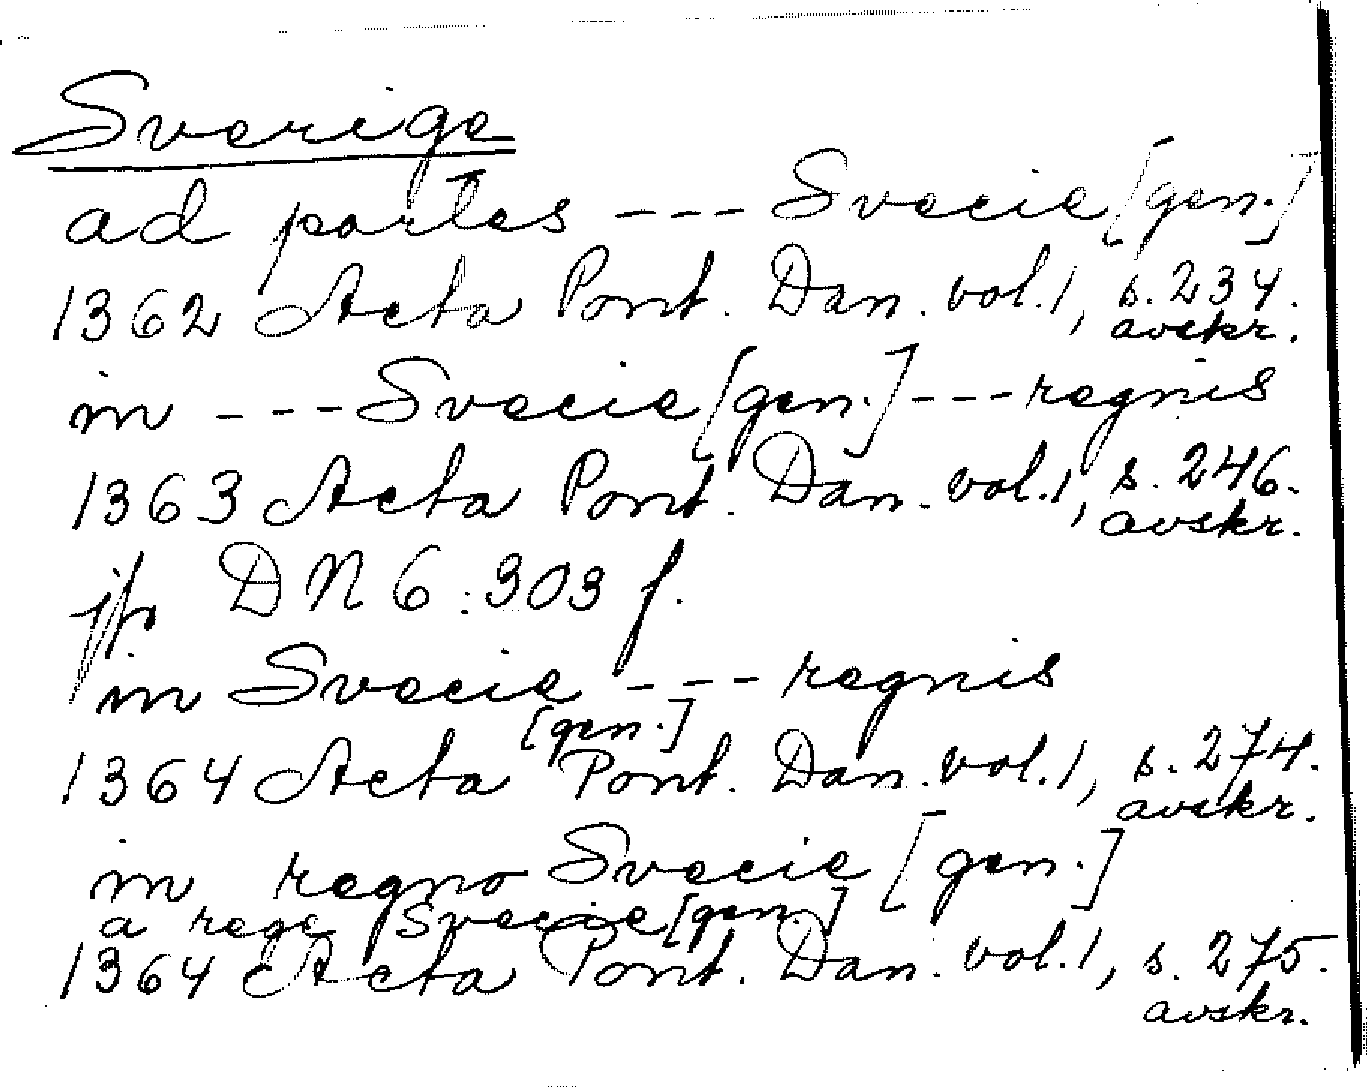 Sverige
ad partes --- Svecie [gen.]
1362 Acta Pont. Dan. vol. 1, s. 234.
avskr.
in --- Svecie [gen.] --- regnis
1363 Acta Pont. Dan. vol. 1, s. 246.
avskr.
jfr. DN 6:303 f.
in Svecie --- regnis
[gen.]
1364 Acta Pont. Dan. vol. 1, s. 274.
avskr.
in regno Svecie [gen.]
a rege Svecie [gen.]
1364 Acta Pont. Dan. vol. 1, s. 275.
avskr.